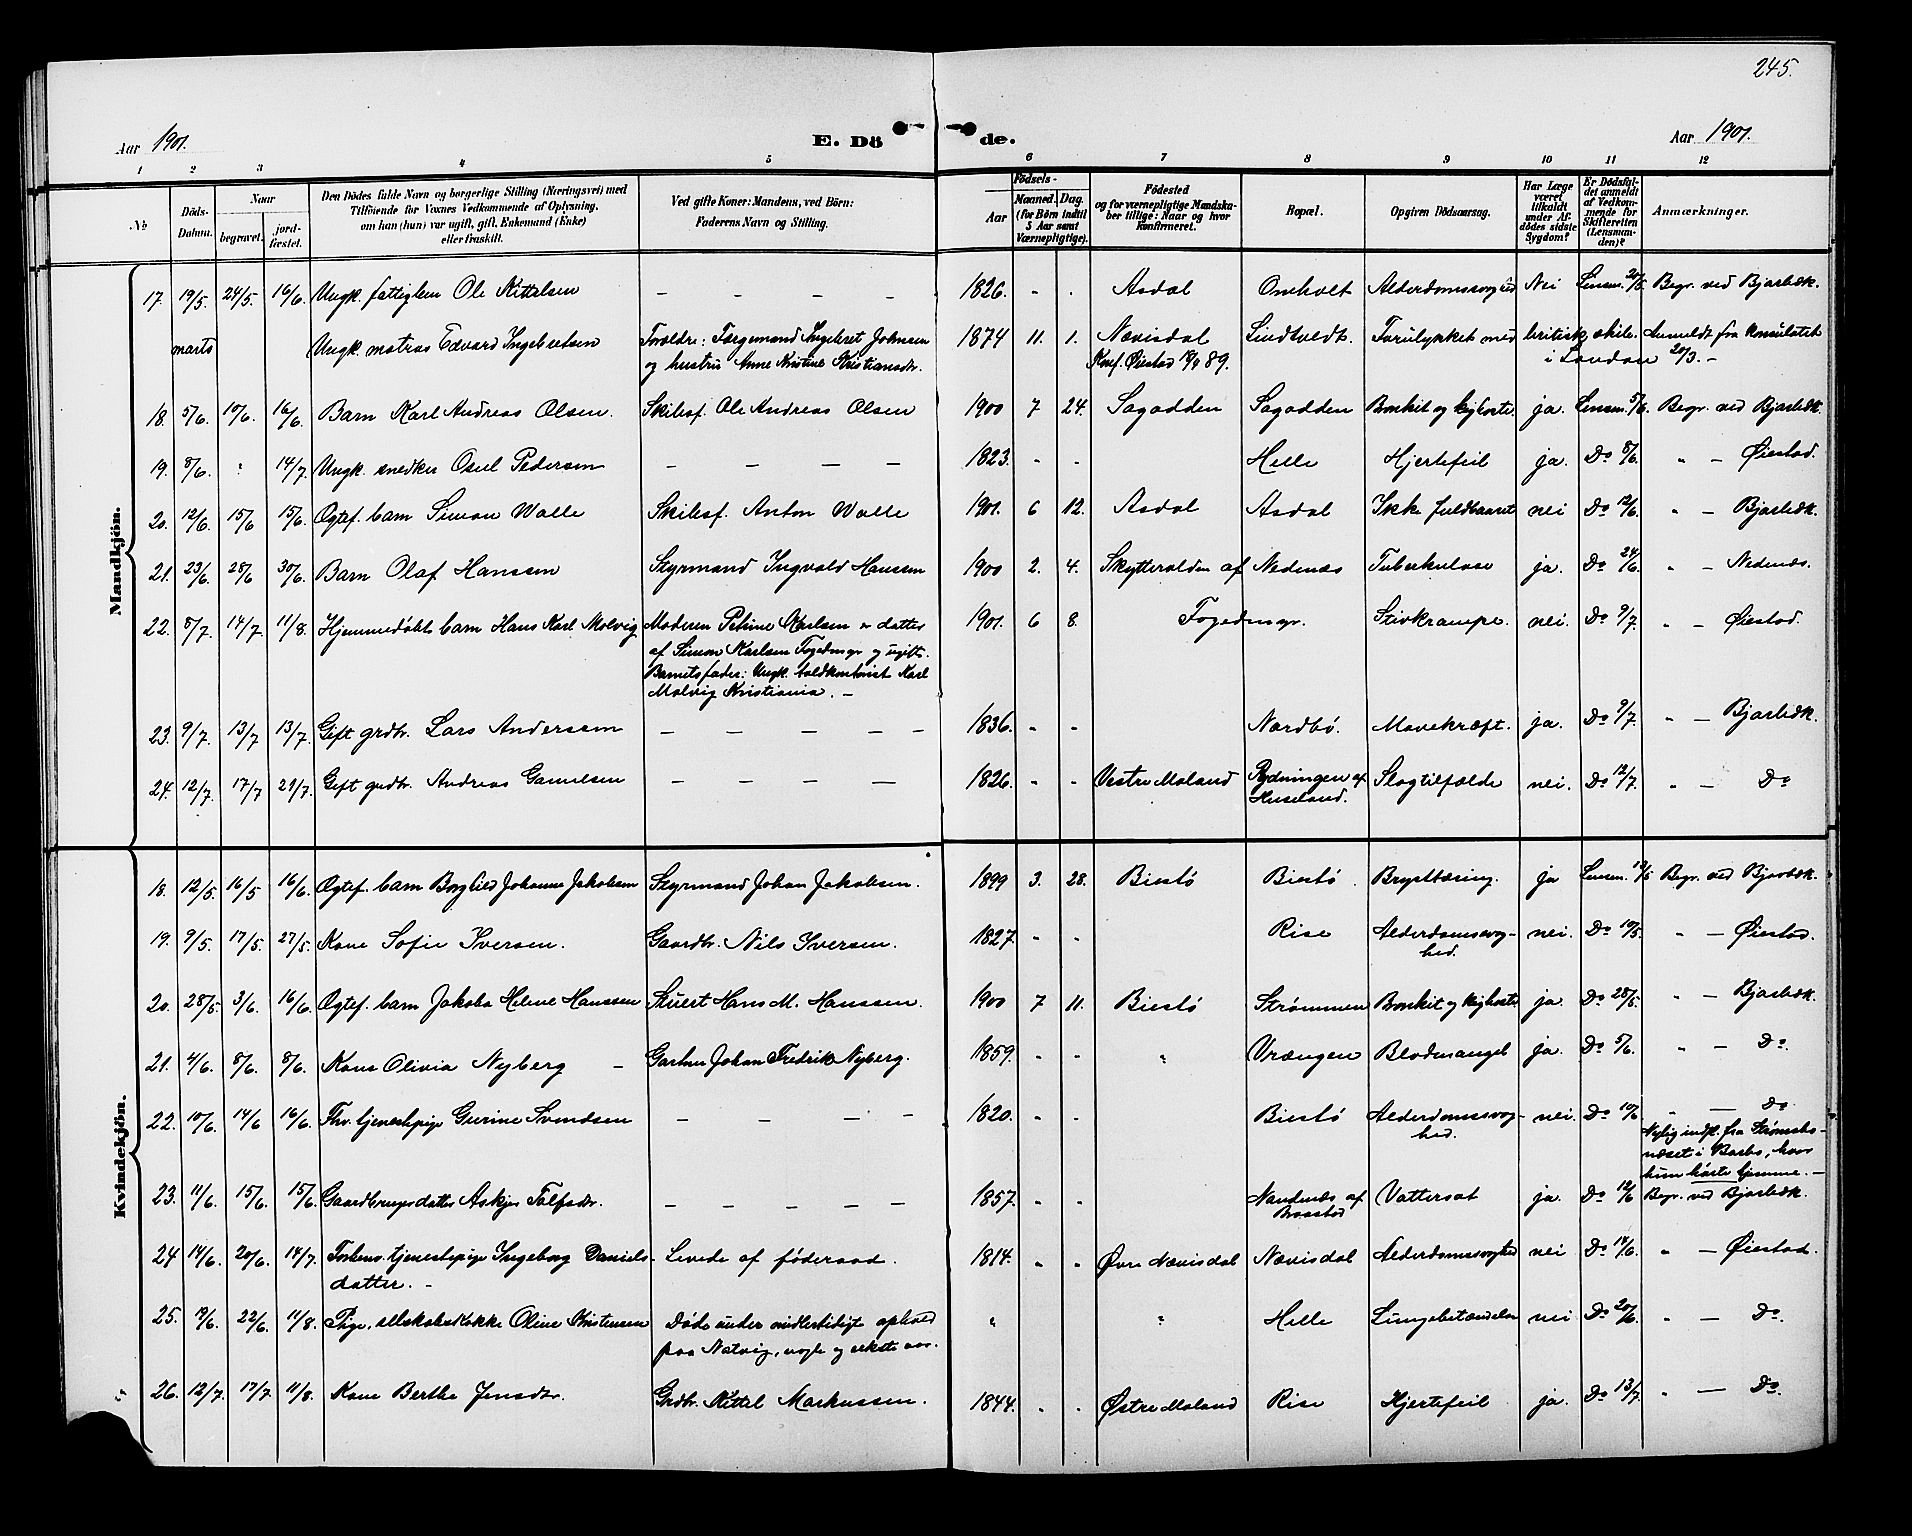 245.
Aar 1901. E. Dö de. Aar 1901.
1 2 3 4 5 6 7 8 9 10 11 12
No
Döds-Datum.
Naar
begravet. jordfæstet.
Den Dödes fulde Navn og borgerlige Stilling (Næringsvei) med
Tilföiende for Voxnes Vedkommende af Oplysning,
om han (hun) var ugift, gift, Enkemand (Enke)
eller fraskilt.
Ved gifte Koner: Mandens, ved Börn:
Faderens Navn og Stilling.
Födsels-
Aar
Maaned. Dag.
(for Börn indtil
5 Aar samt
Værnepligtige).
Födested
og for værnepligtige Mandska-
ber tillige: Naar og hvor
konfirmeret.
Bopæl.
Opgiven Dödsaarsag.
Har Læge
været
tilkaldt
under Af-
dödes sidste
Sygdom?
Er Dödsfal-
det anmeldt
af Vedkom-
mende for
Skifteretten
(Lensman-
den)?
Anmærkninger.
Mandkjön.
17. 19/5. 24/5. 16/6. Ungk. fattiglem Ole Kittelsen – – – – 1826. - - Asdal Omholt Alderdomssvaghed Nei Lensm. 20/5 Begr. ved Bjorbæk.
marts Ungk. matros Edvard Ingebretsen Forældre: Færgemand Ingebret Johnsen 1874 11. 1. Nævisdal Lindtvedt. Forulykket med britisk skib. Anmeldt fra konsulatet
og hustru Anne Kristine Kristiansdr. Konf. Øiestad 89. i London 20/3. –
18. 5/6. 10/6. 16/6. Barn Karl Andreas Olsen. Skibsf. Ole Andreas Olsen 1900 7 24. Sagodden Sagodden Bronkit og kighoste. ja. Lensm. 5/6. Begr. ved Bjorbæk.
19. 8/6. " 14/7. Ungk. snedker Osul Pedersen – – – – 1823. - - Helle Hjertefeil ja. Do 8/6. " – Øiestad.
20. 12/6. 15/6 15/6. Ogtef. barn Simon Walle Skibsf. Anton Walle 1901. 6 12. Asdal Asdal Ikke fuldbaaret nei Do 12/6. " – Bjorbæk.
21. 23/6. 28/6 30/6. Barn Olaf Hanssen Styrmand Ingvald Hanssen 1900 2. 4. Skyttevolden af Nedenæs Tuberkulose ja. Do 24/6. " – Nedenæs.
22. 8/7. 14/7. 11/8. Hjemmedøbt barn Hans Karl Molvig Moderen Petrine Karlsen er datter 1901. 6 8. Fogedmyr. Stivkrampe. nei. Do 9/7. " – Øiestad.
af Simon Karlsen Fogedmyr og ugift.
Barnets fader: Ungk. toldkontorist Karl
Molvig Kristiania. –
23. 9/7. 13/7 13/7. Gift grdbr. Lars Anderssen – – – – – 1836. - - Nordbö. Mavekræft. ja. Do 9/7. " – Bjorbæk.
24. 12/7. 17/7 21/7. Gift grdbr. Andreas Gamelsen – – – – 1826. - - Vestre Moland Rydningen af Slagtilfælde nei. Do 12/7. " – Do
Huseland.
Kvindekjön.
18. 12/5. 16/5 16/6. Ogtef. barn Borghild Johanne Jakobsen Styrmand Johan Jakobsen. 1899 3. 28. Biestø Biestø. Brysttæring. ja Lensm. 12/5 Begr. ved Bjorbæk.
19. 9/5. 17/5. 27/5. Kone Sofie Iversen. Gaardbr. Nils Iversen. 1827. - - Rise Alderdomssvag- nei. Do 10/5. " – Øiestad.
hed.
20. 28/5. 3/6. 16/6. Ogtef. barn Jakoba Helene Hanssen Stuert Hans M. Hanssen. 1900 7 11. Biestø Strømmen Bronkit og kighoste ja. Do 28/5. " – Bjorbæk.
21. 4/6. 8/6. 8/6. Kone Olivia Nyberg – Gartner Johan Fredrik Nyberg. 1859. - - " Vrængen Blodmangel ja. Do 5/6. " – Do.
22. 10/6. 14/6 16/6. Fhv. tjenestepige Gurine Svendsen – – – – 1820. - - Biestø Alderdomssvag- nei. Do 10/6 " – Do
hed. Nylig indfl. fra Strømsbo-
næset i Barbo, hvor
hun hørte hjemme. –
23. 11/6. 15/6. 15/6. Gaardbrugerdatter Askjer – – – – – 1857. - - Nandenæs af Vattersot ja. Do 12/6 Begr. ved Bjorbæk.
Braastad
24 14/6. 20/6. 14/7. tjenestepige Ingeborg Daniels- Levede af føderaad. 1814. - - Øvre Nævisdal Nævisdal Alderdomssvaghed nei Do 14/6. " – Øiestad.
datter. –
25. 19/6. 22/6. 11/8. Pige, selskabskokke Oline Kristensen Døde under midlertidigt ophold " " Helle Lungebetændelse nei Do 20/6. " – Do.
paa Natvig,
26. 12/7. 17/7. 11/8. Kone Berthe Jensdtr. Grdbr. Kittel Markussen. 1844. - - Østre Moland Rise Hjertefeil ja. Do 13/7. " – Do.